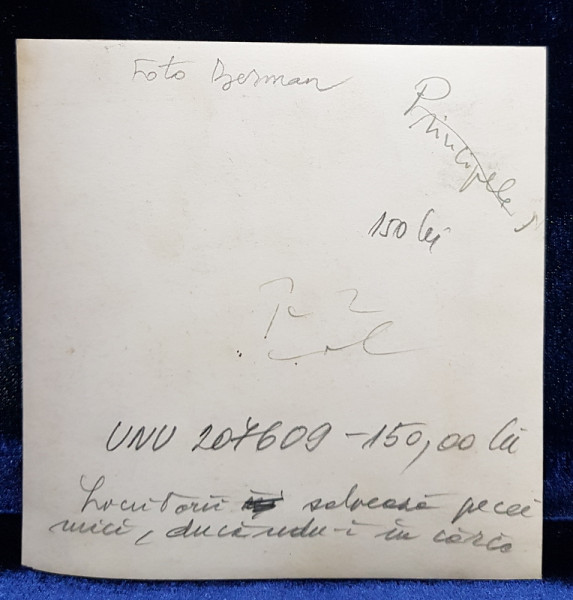 Foto Berman
Principele,
150 lei
P 2
col
UNU 207609 - 150,00 lei
Locuitorii salvează pe cei
mici, ducându-i în cârcă